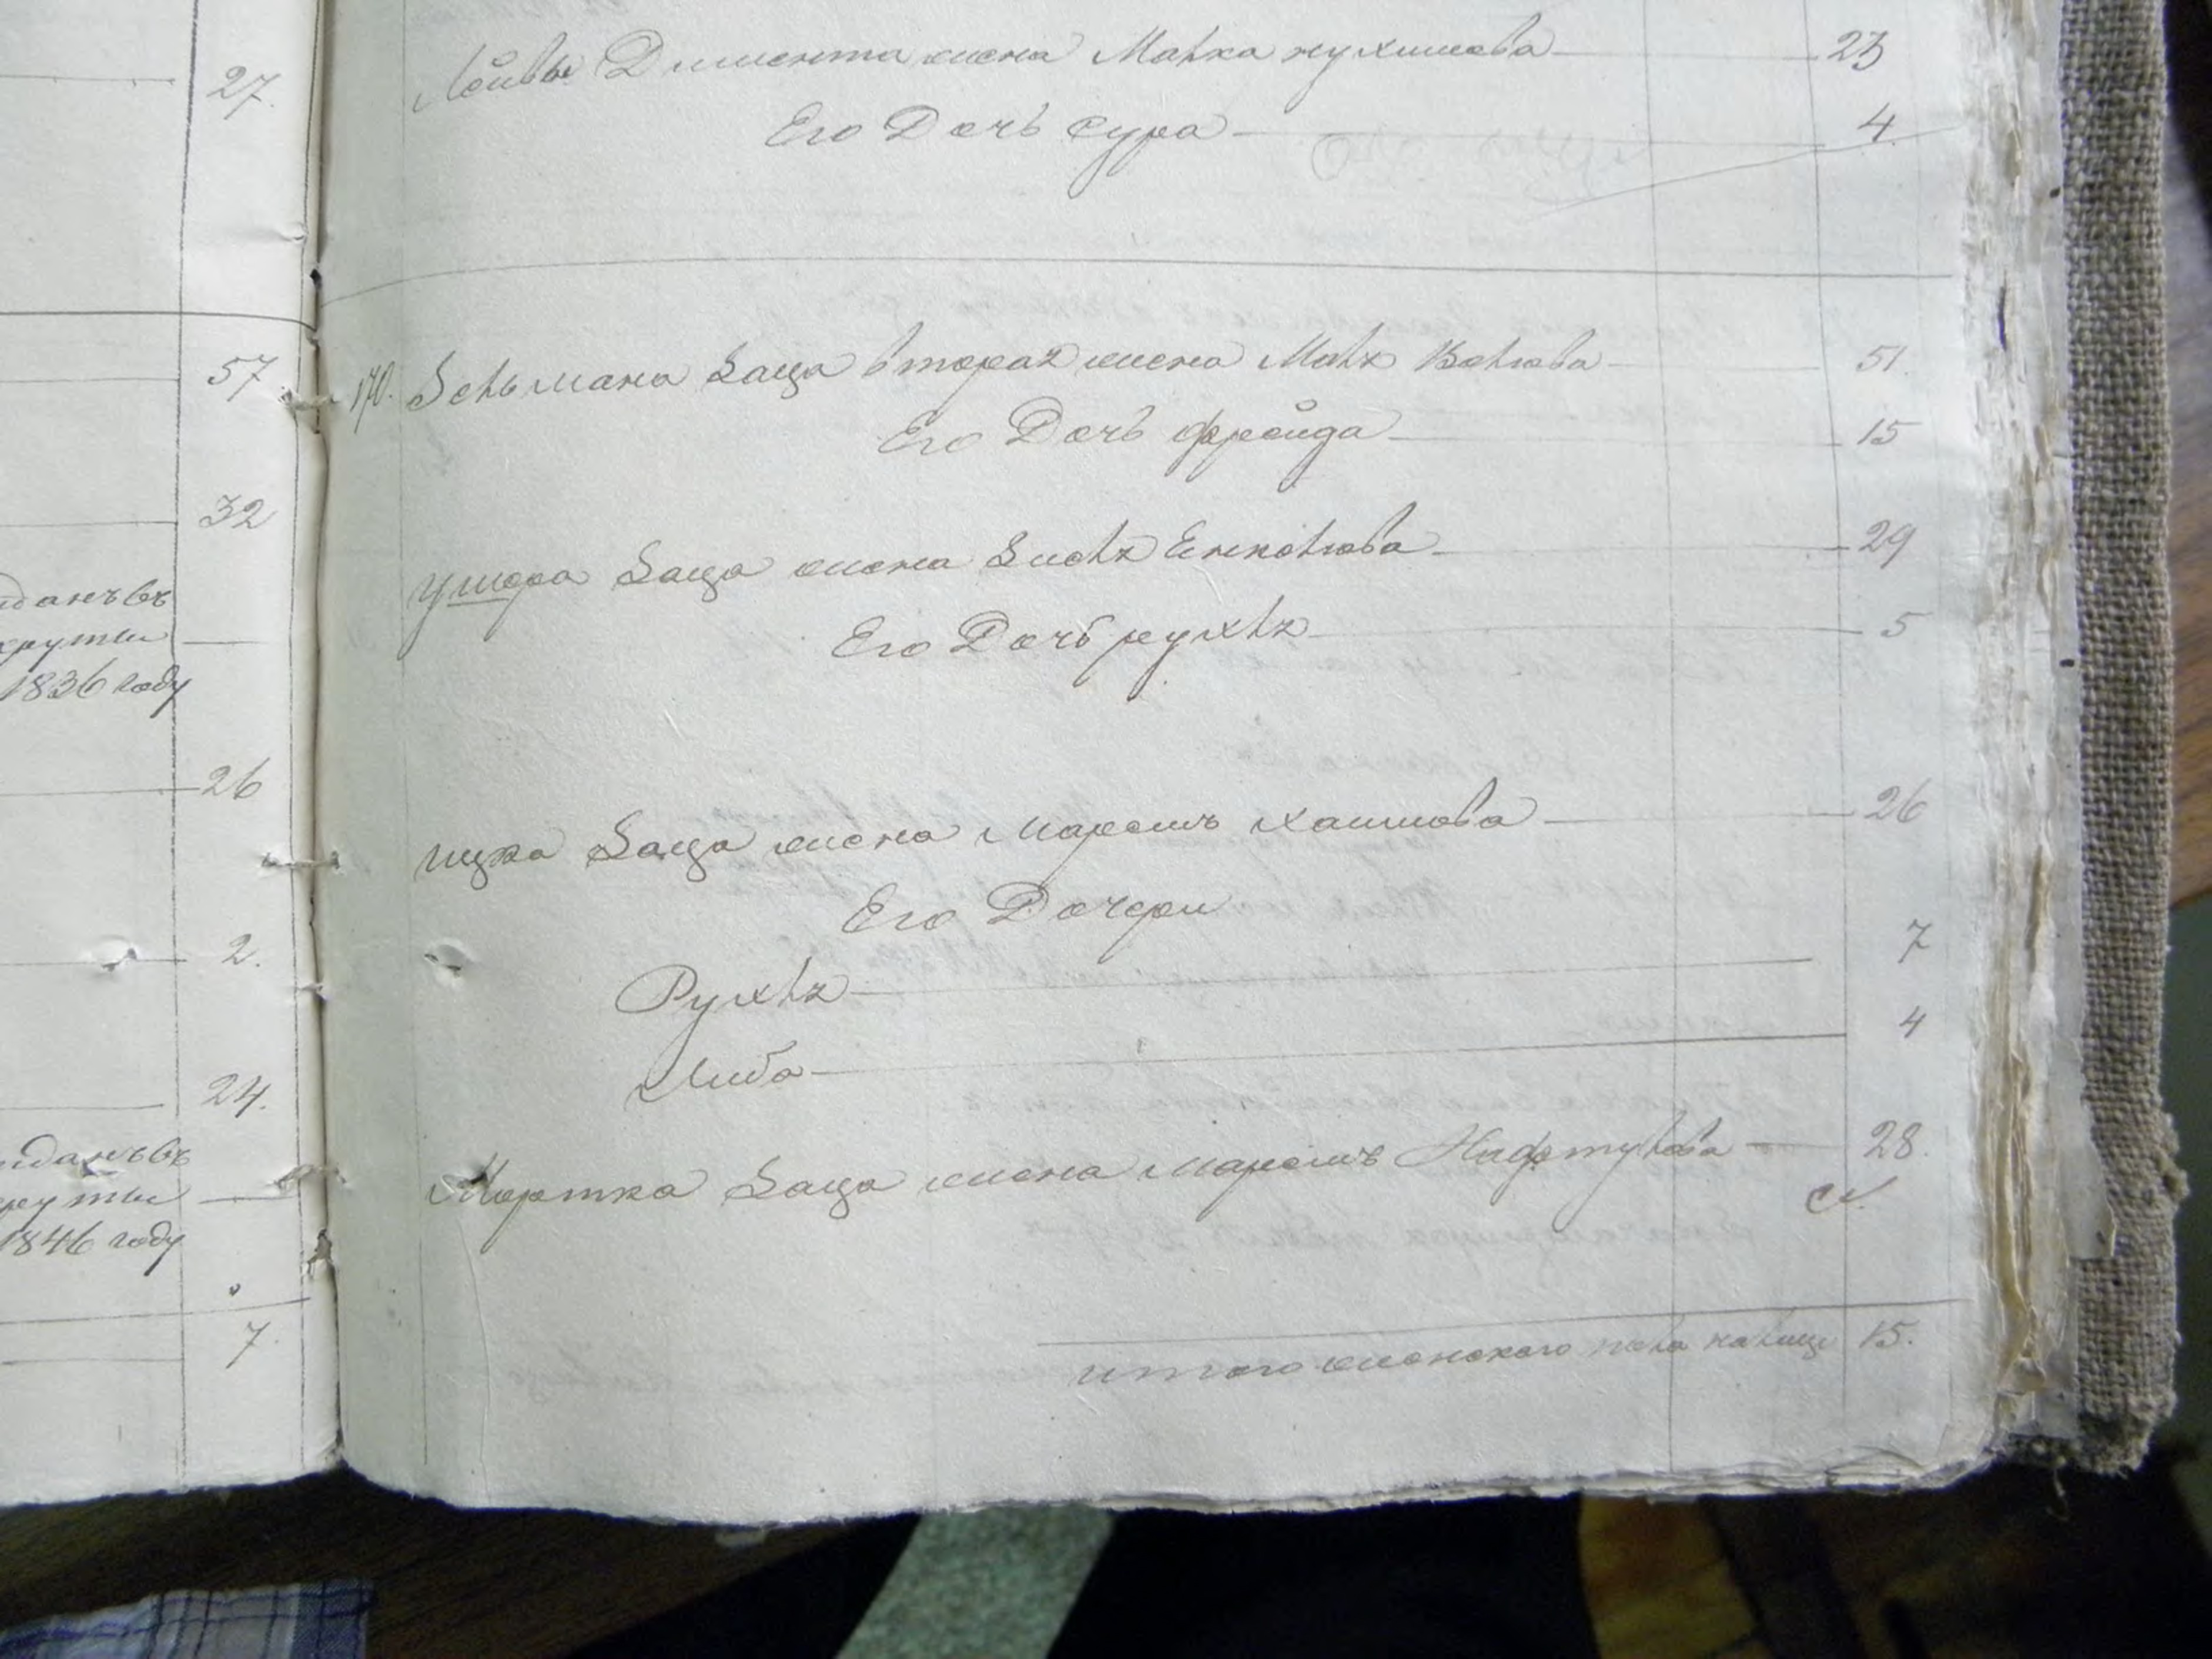 27.
57.
32
данъ въ
круты
1836 году
26
2.
24.
данъ въ
круты
1846 году
7.
Лейбы Димента жена Малка нухимова 23
Его Дочь Сура 4
170. Зельмана Заца вторая жена 51
Его Дочь фрейда 15
Ушера Заца жена Янкелова 29
Его Дочь рухля 5
ицка Заца жена Маремъ хаимова 26
Его Дочери
Рухля 7
Либа 4
Мортка Заца жена маремъ Нафтулова 28.
итого женского пола налицо 15.